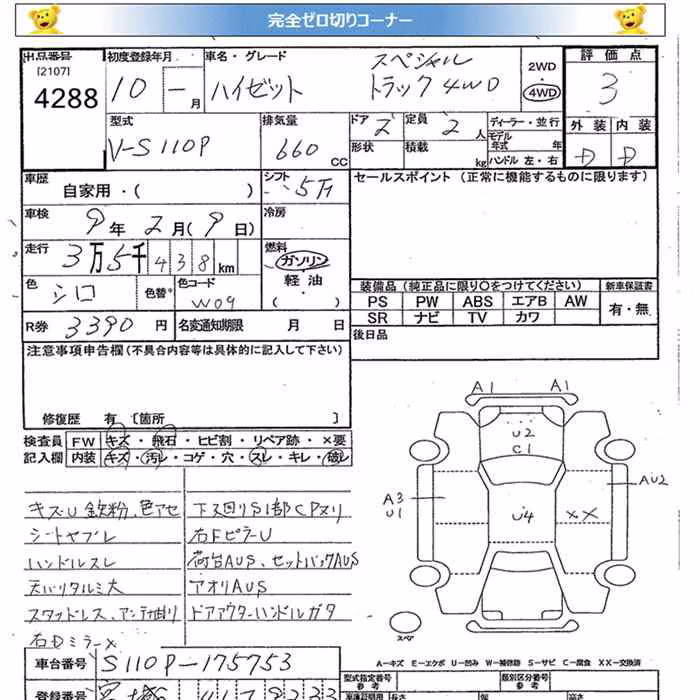 完全ゼロ切りコーナー
出品番号 初度登録年月 車名・グレード 評価点
[2107]
4288
10 - 月
ハイゼット スペシャル
トラック 4WD
2WD
4WD
3
外装 内装
D D
型式 排気量 ドア 2 定員 2人 ディーラー・並行
V-S110P 660 CC 形状 積載 kg モデル年式 年
ハンドル 左・右
車歴 シフト セールスポイント (正常に機能するものに限ります)
自家用・( ) 5F
車検 冷房
9年2月(9日)
走行 燃料
3万5千438km ガソリン
色 色替 色コード 軽油
シロ W09 ( )
装備品 (純正品に限り○をつけてください) 新車保証書
PS PW ABS エアB AW 有・無
SR ナビ TV カワ
R券 3390円 名変通知期限 月 日
後日品
注意事項申告欄 (不具合内容等は具体的に記入して下さい)
修復歴 有 [箇所 ]
検査員 FW キズ・飛石・ヒビ割・リペア跡・×要
記入欄 内装 キズ・汚レ・コゲ・穴・スレ・キレ・破レ
キズ・U 鉄粉、色アセ 下スU回りS1部CPヌリ
シートヤブレ 右FピラーU
ハンドルスレ 荷台AUS、セットバックAUS
天バリタルミ大 アオリAUS
スタッドレス、アンテナ曲リ ドアアウターハンドルガタ
右Dミラー×
A1 A1
U2
C1
A3
U1
U4
××
AU2
スペア
A-キズ E-エクボ U-凹み W-補修跡 S-サビ C-腐食 XX-交換済
車台番号 S110P-175753
型式指定番号 参考 類別区分番号 参考
登録番号 宮城 41 7 9233
長さ 幅 高さ